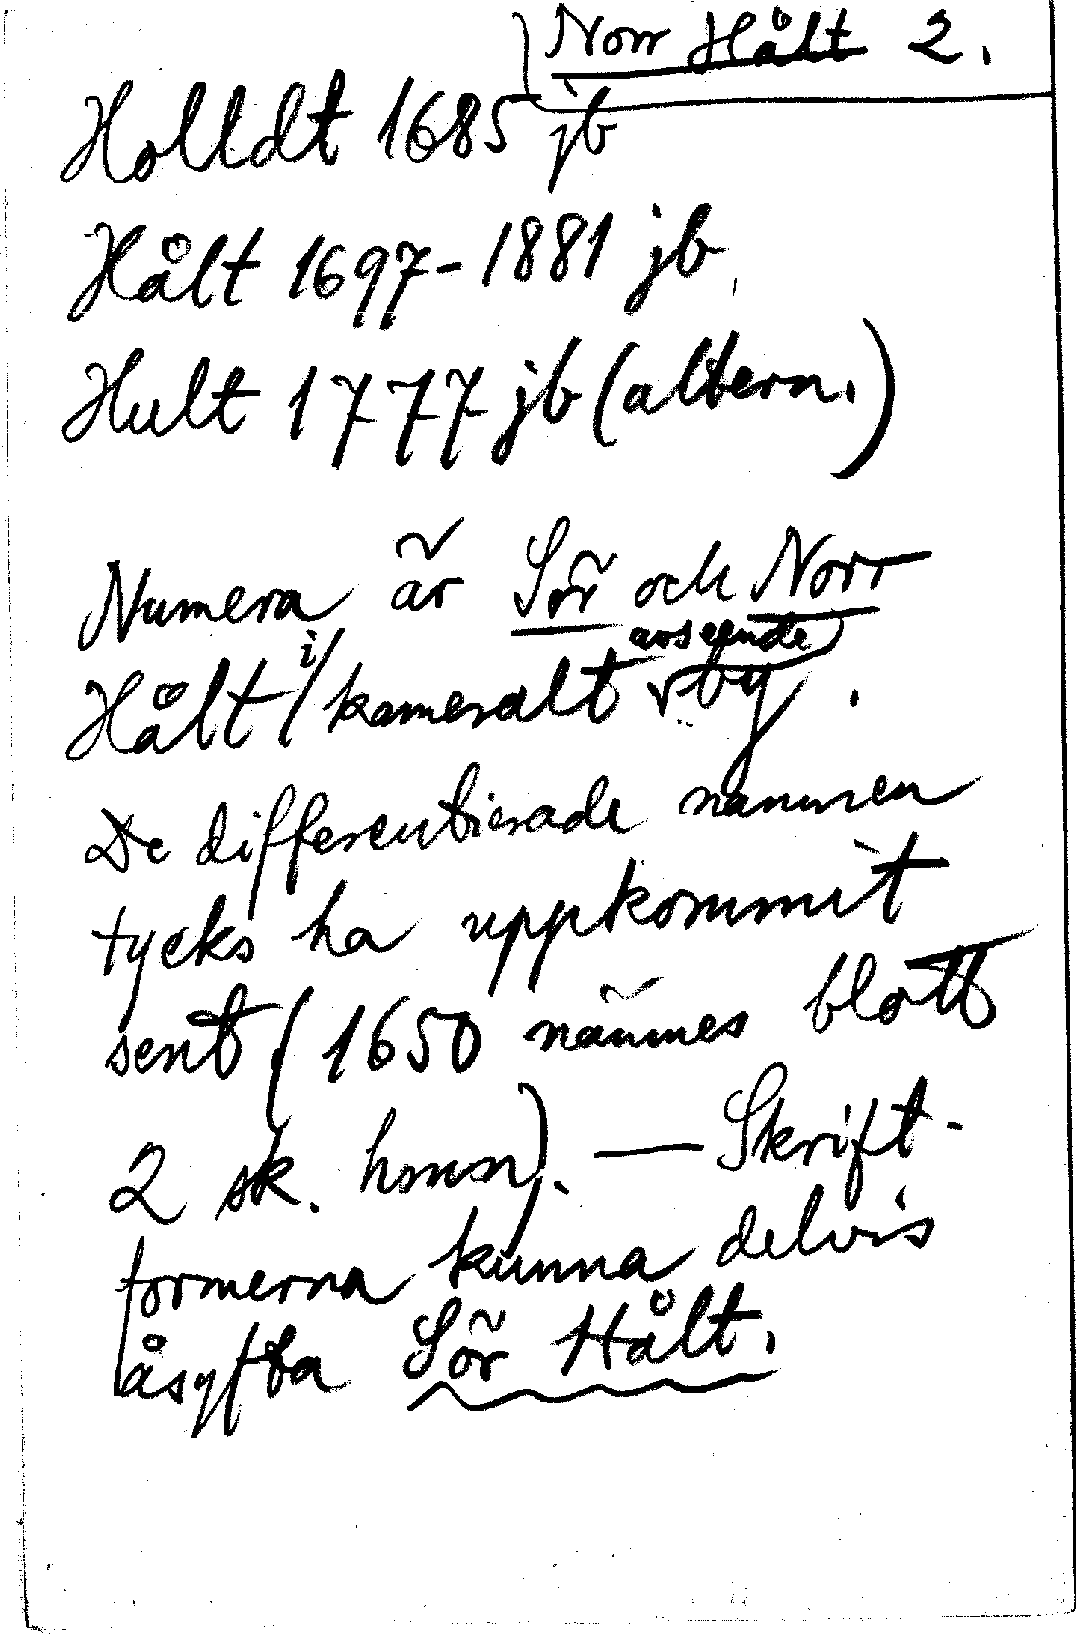 Norr Hålt 2.
Holldt 1685 jb
Hålt 1697-1881 jb
Hult 1777 jb (altern.)
Numera är Sör och Norr
avseende
Hålt i kameralt by.
De differentierade namnen
tycks ha uppkommit
sent (1650 nämnes blott
2 sk. hmn). — Skrift-
formerna kunna delvis
åsyfta Sör Hålt.